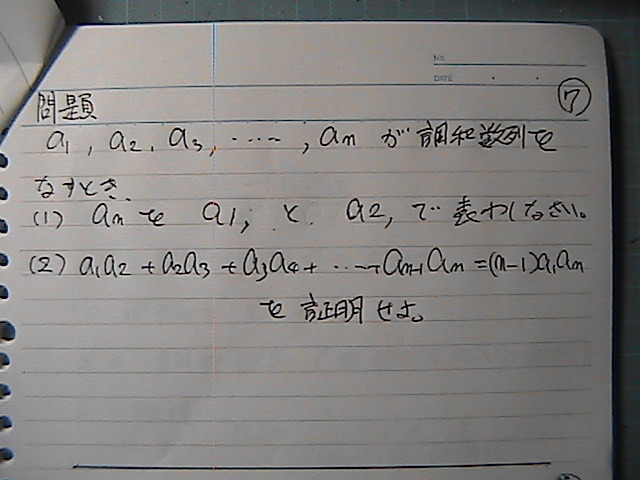 No.
DATE
⑦
問題
a₁, a₂, a₃, ……, aₙ が調和数列を
なすとき、
(1) aₙ を a1, と a2, で表わしなさい。
(2) a₁a₂ + a₂a₃ + a₃a₄ + …… aₙ₋₁aₙ = (n-1)a₁aₙ
を証明せよ。